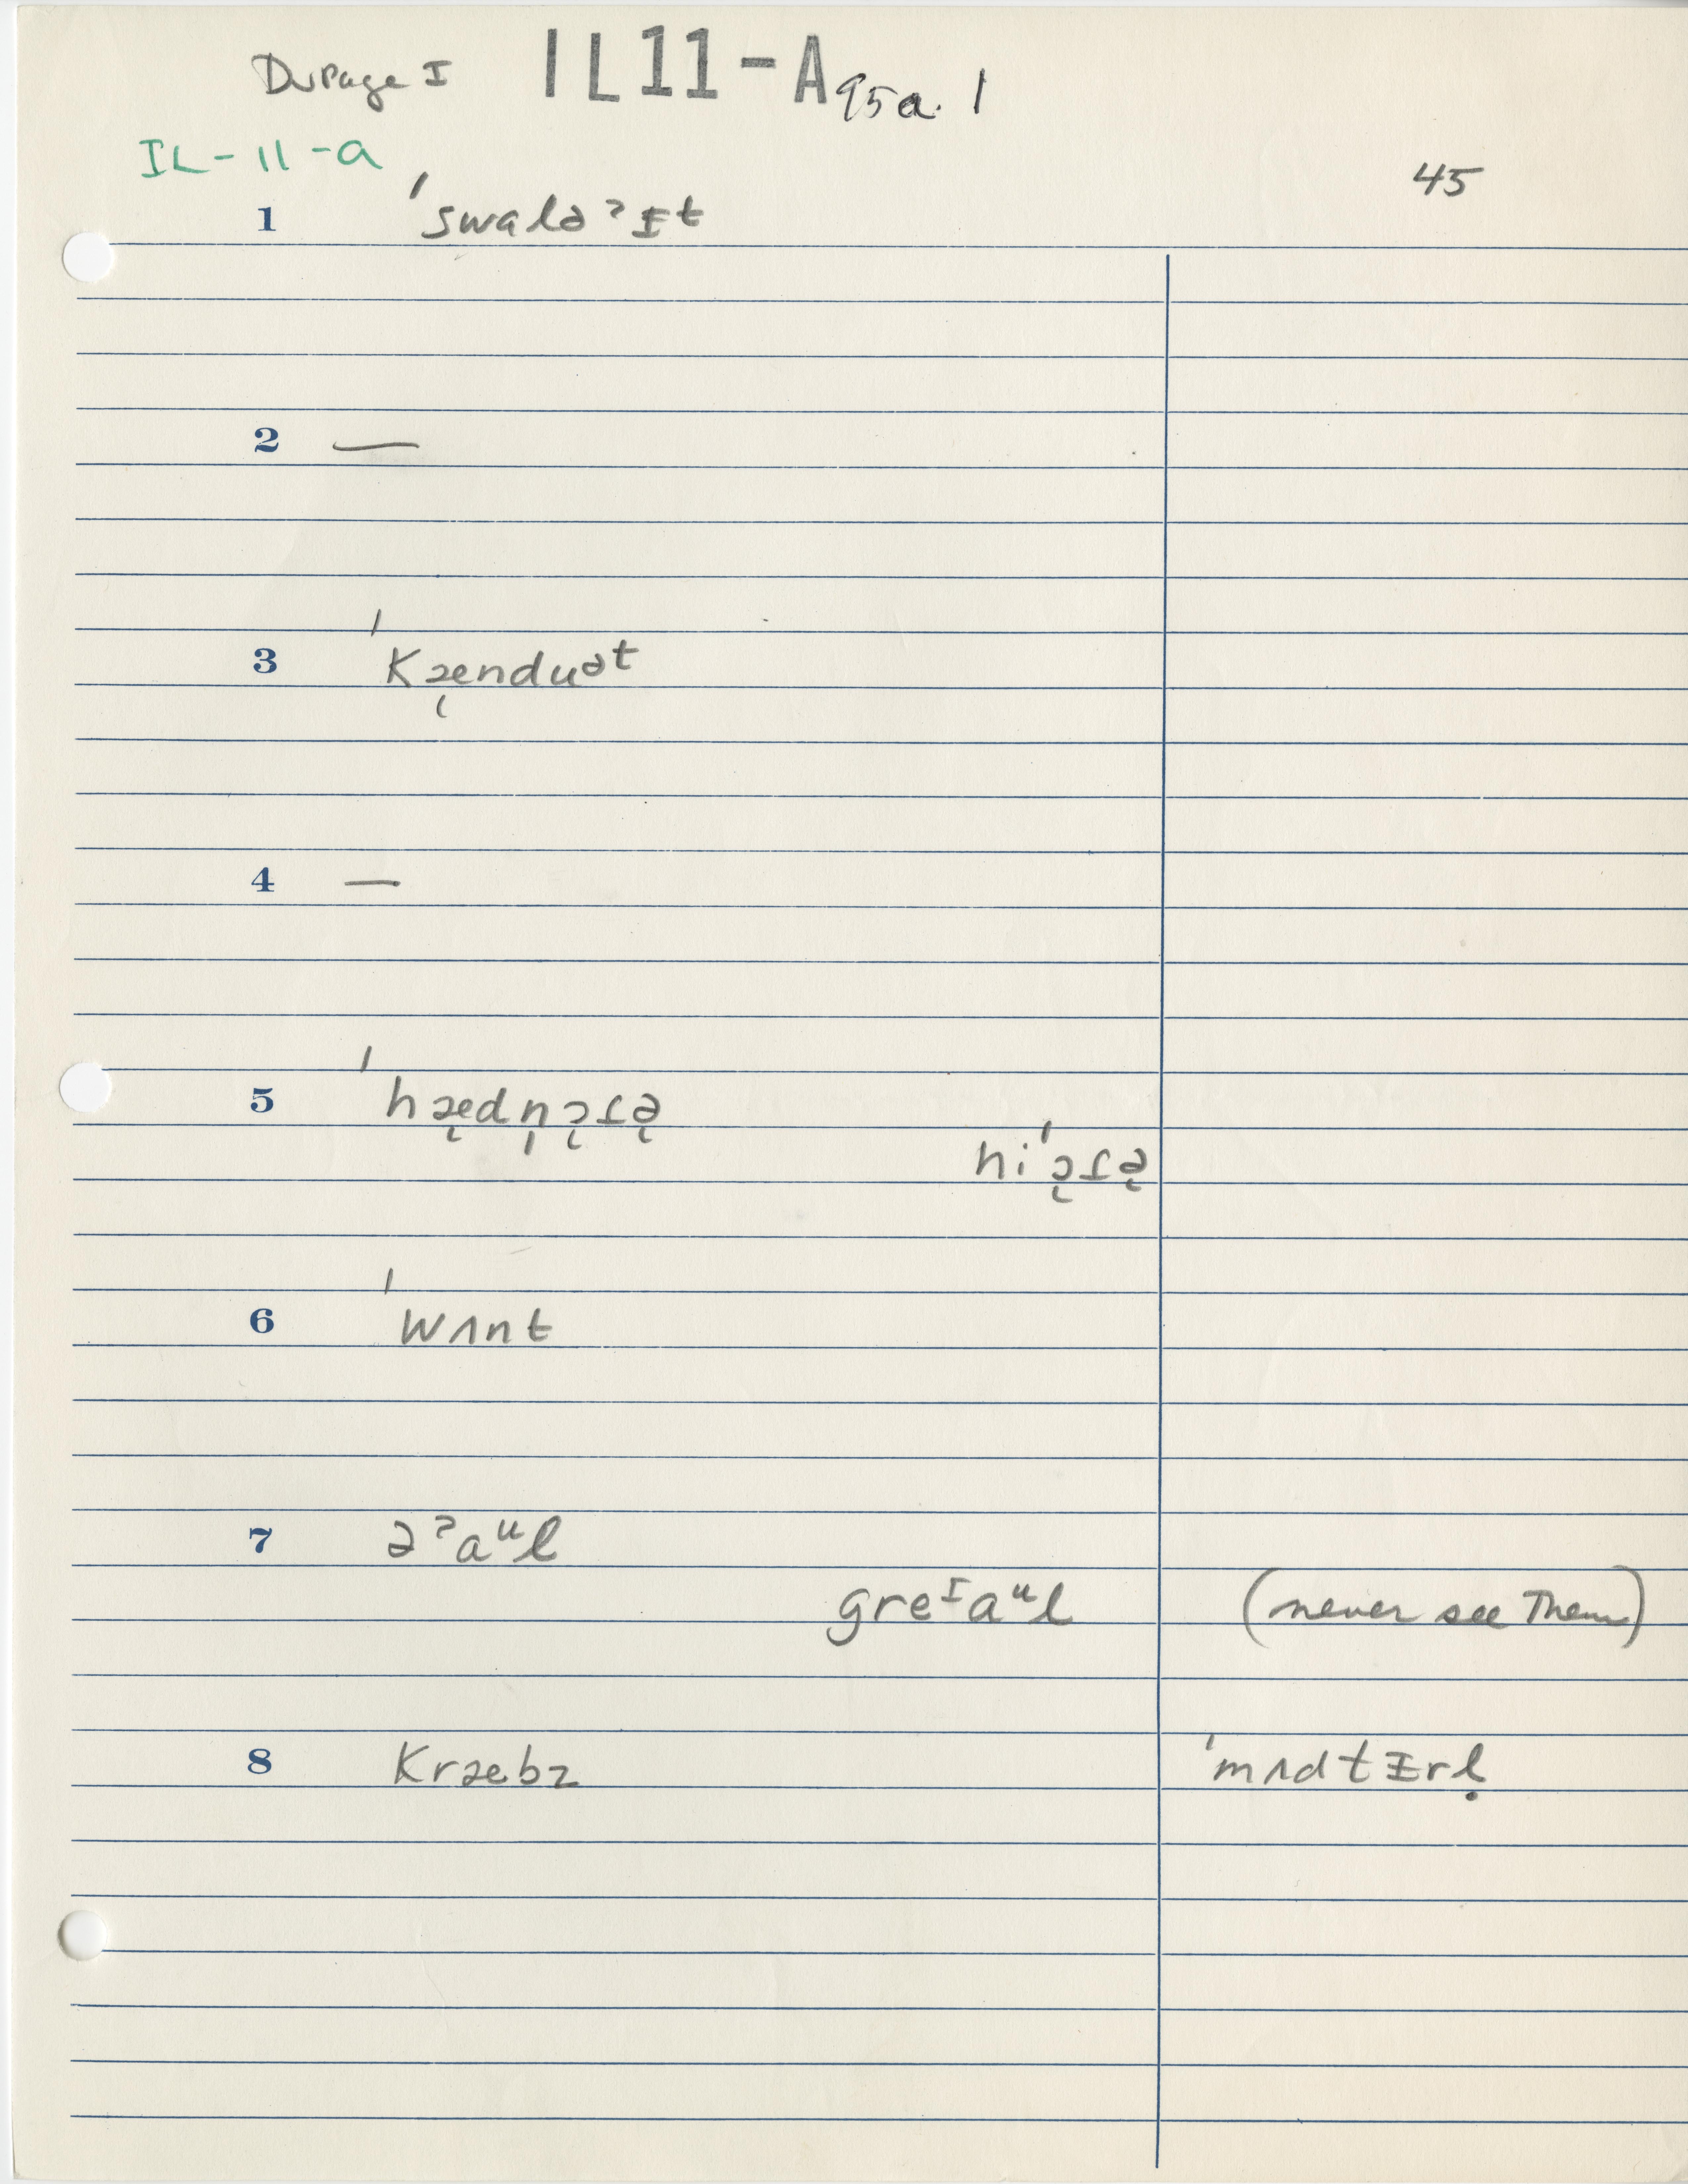 DuPage I IL11-A 95a.1
IL-11-a
45
1 ˈswaləˀɪt
2 —
3 ˈkæ̨nduət
4 —
5 ˈhæ̨dn̩ə̨ɾə̨
hiˈə̨ɾə̨
6 ˈwʌnt
7 əˀaᵘl
greᴵaᵘl (never see Them)
8 kræbz ˈmʌdtᵻrḷ